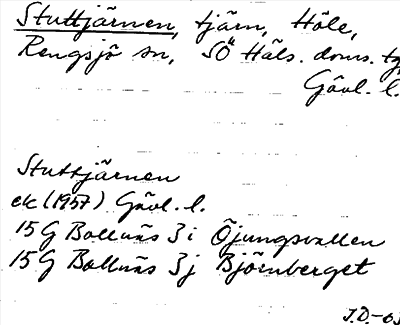 Stuttjärnen, tjärn, Höle,
Rengsjö sn, SÖ Häls. doms. tg,
Gävl. l.
Stuttjärnen
ek (1957) Gävl. l.
15G Bollnäs 3i Öjungsvallen
15G Bollnäs 3j Björnberget
J.D.-63